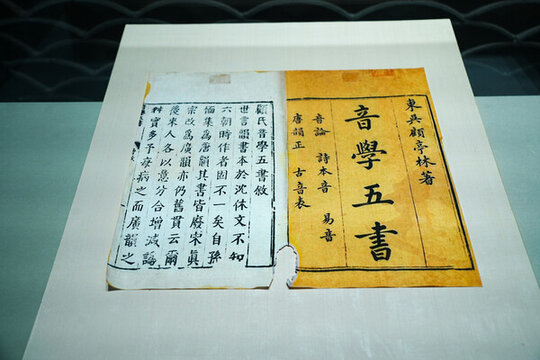 東吳顧亭林著
音學五書
音論 詩本音 易音
唐韻正 古音表
顧氏音學五書敘
世言韻書本於沈休文不知
六朝時作者固不一矣自孫
愐集為唐韻其書皆廢宋眞
宗改為廣韻亦仍舊貫云爾
後來人各以意分合增減諸
林實多予病之而廣韻之